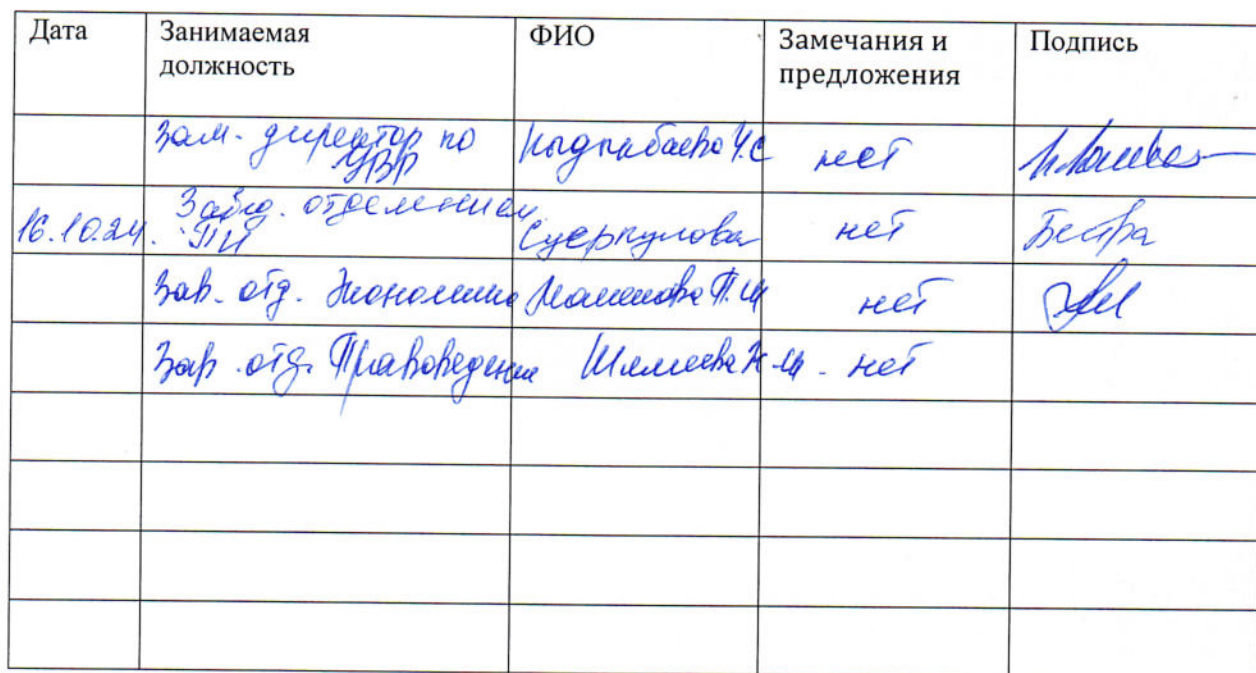 Дата Занимаемая должность ФИО Замечания и предложения Подпись
Зам. директор по УВР Кыдыкбаева Ч.С нет
16.10.24. Завед. отделением ПИ Суеркулова нет
Зав. отд. Экономики П.Ш нет
Зав. отд. Правоведения нет